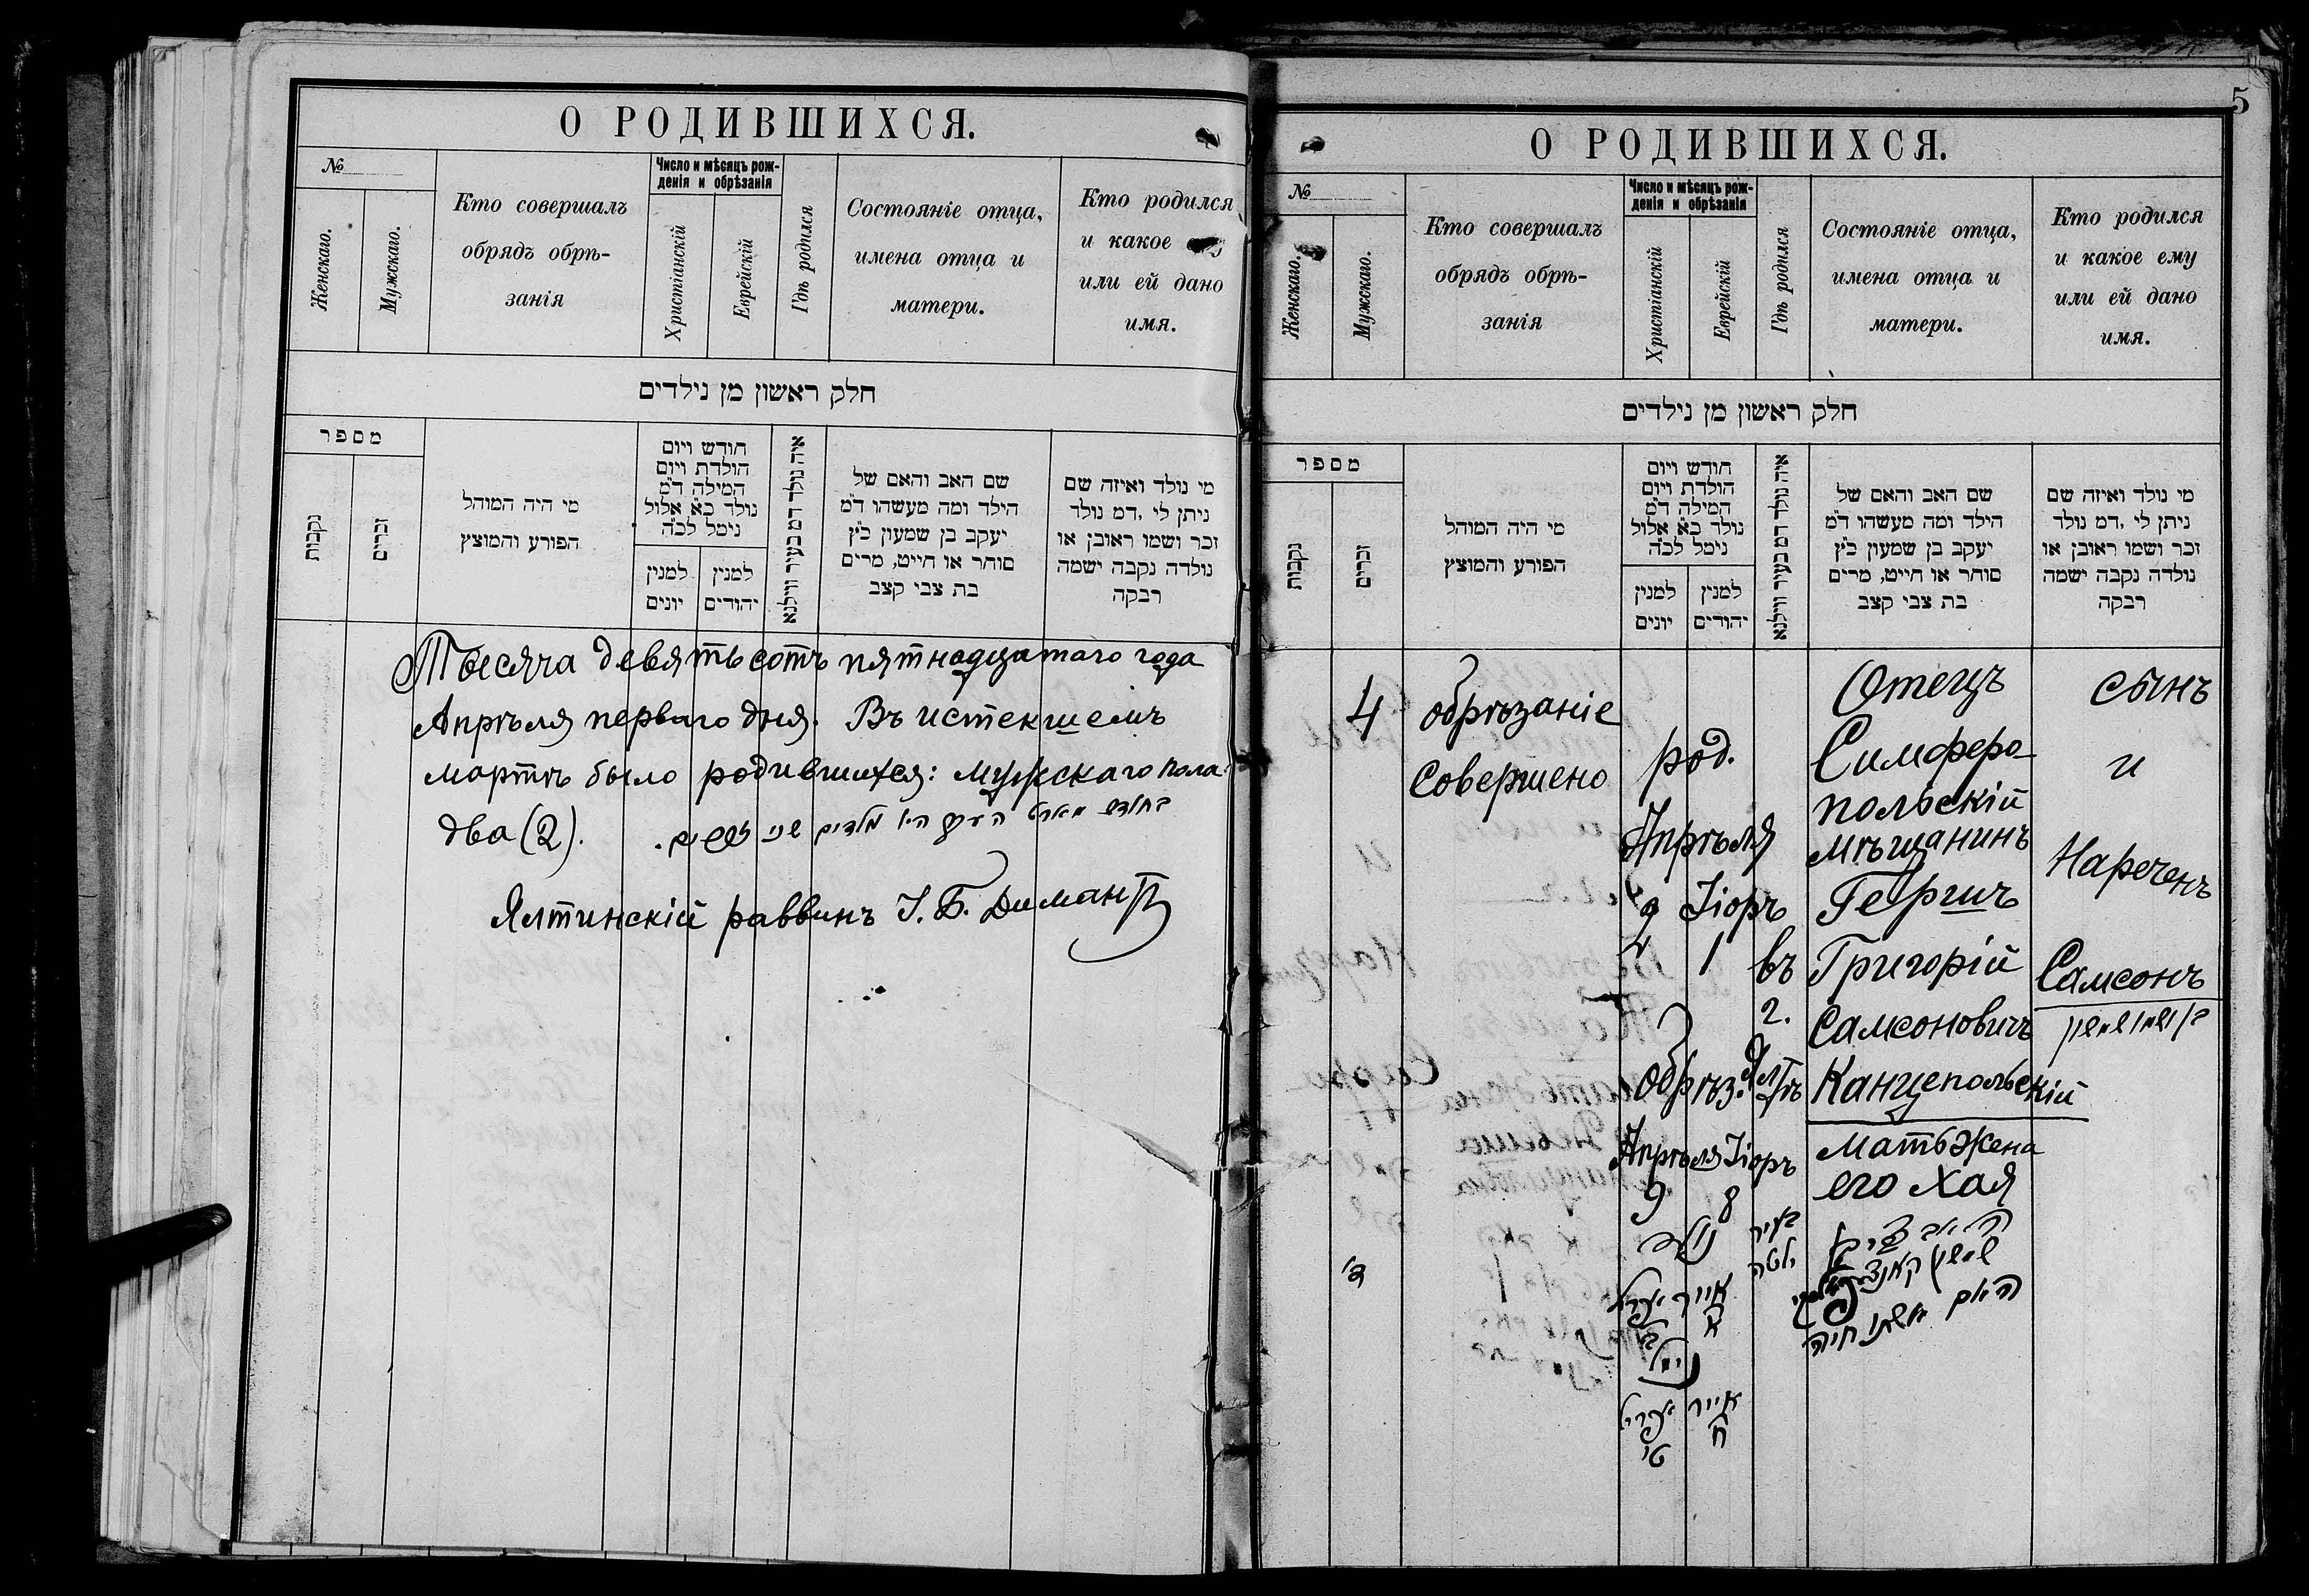 О РОДИВШИХСЯ.
№
Женскаго.
Мужскаго.
Кто совершалъ
обрядъ обрѣ-
занія
Число и мѣсяцъ рож-
денія и обрѣзанія
Христіанскій
Еврейскій
Гдѣ родился
Состояніе отца,
имена отца и
матери.
Кто родился
и какое
или ей дано
имя.
חלק ראשון מן נילדים
מספר
נקבות
זכרים
מי היה המוהל
הפורע והמוצץ
חודש ויום
הולדת ויום
המילה ד״מ
נולד כ״א אלול
נימל לכ״ה
למנין
יונים
למנין
יהודים
איה נולד דמ בעיר ווילנא
שם האב והאם של
הילד ומה מעשהו ד״מ
יעקב בן שמעון כ״ץ
סוחר או חייט, מרים
בת צבי קצב
מי נולד ואיזה שם
ניתן לי, דמ נולד
זכר ושמו ראובן או
נולדה נקבה ישמה
רבקה
Тысяча девятьсотъ пятнадцатаго года
Апрѣля перваго дня. Въ истекшемъ
мартѣ было родившихся: мужскаго пола
два (2).
בחודש מארט היו שני
Ялтинскій раввинъ І. Б. Димантъ
5
О РОДИВШИХСЯ.
№
Женскаго.
Мужскаго.
Кто совершалъ
обрядъ обрѣ-
занія
Число и мѣсяцъ рож-
денія и обрѣзанія
Христіанскій
Еврейскій
Гдѣ родился
Состояніе отца,
имена отца и
матери.
Кто родился
и какое ему
или ей дано
имя.
חלק ראשון מן נילדים
מספר
נקבות
זכרים
מי היה המוהל
הפורע והמוצץ
חודש ויום
הולדת ויום
המילה ד״מ
נולד כ״א אלול
נימל לכ״ה
למנין
יונים
למנין
יהודים
איה נולד דמ בעיר ווילנא
שם האב והאם של
הילד ומה מעשהו ד״מ
יעקב בן שמעון כ״ץ
סוחר או חייט, מרים
בת צבי קצב
מי נולד ואיזה שם
ניתן לי, דמ נולד
זכר ושמו ראובן או
נולדה נקבה ישמה
רבקה
4
ד׳
обрѣзаніе
совершено
род.
Апрѣля
2 Іюръ
1
Обрѣз.
Апрѣля Іюръ
9 8
נולד
אייר אפריל
א ב׳
נימול
אייר אפריל
ח ט׳
въ
г.
Ялтѣ
בעיר
ילטה
Отецъ
Симферо-
польскій
мѣщанинъ
Гершъ
Григорій
Самсоновичъ
Канцепольскій
Мать жена
его Хая
האב צבי בן
שמשון
האם אשתו חיה
сынъ
и
Нареченъ
Самсонъ
בן ושמו שמשון